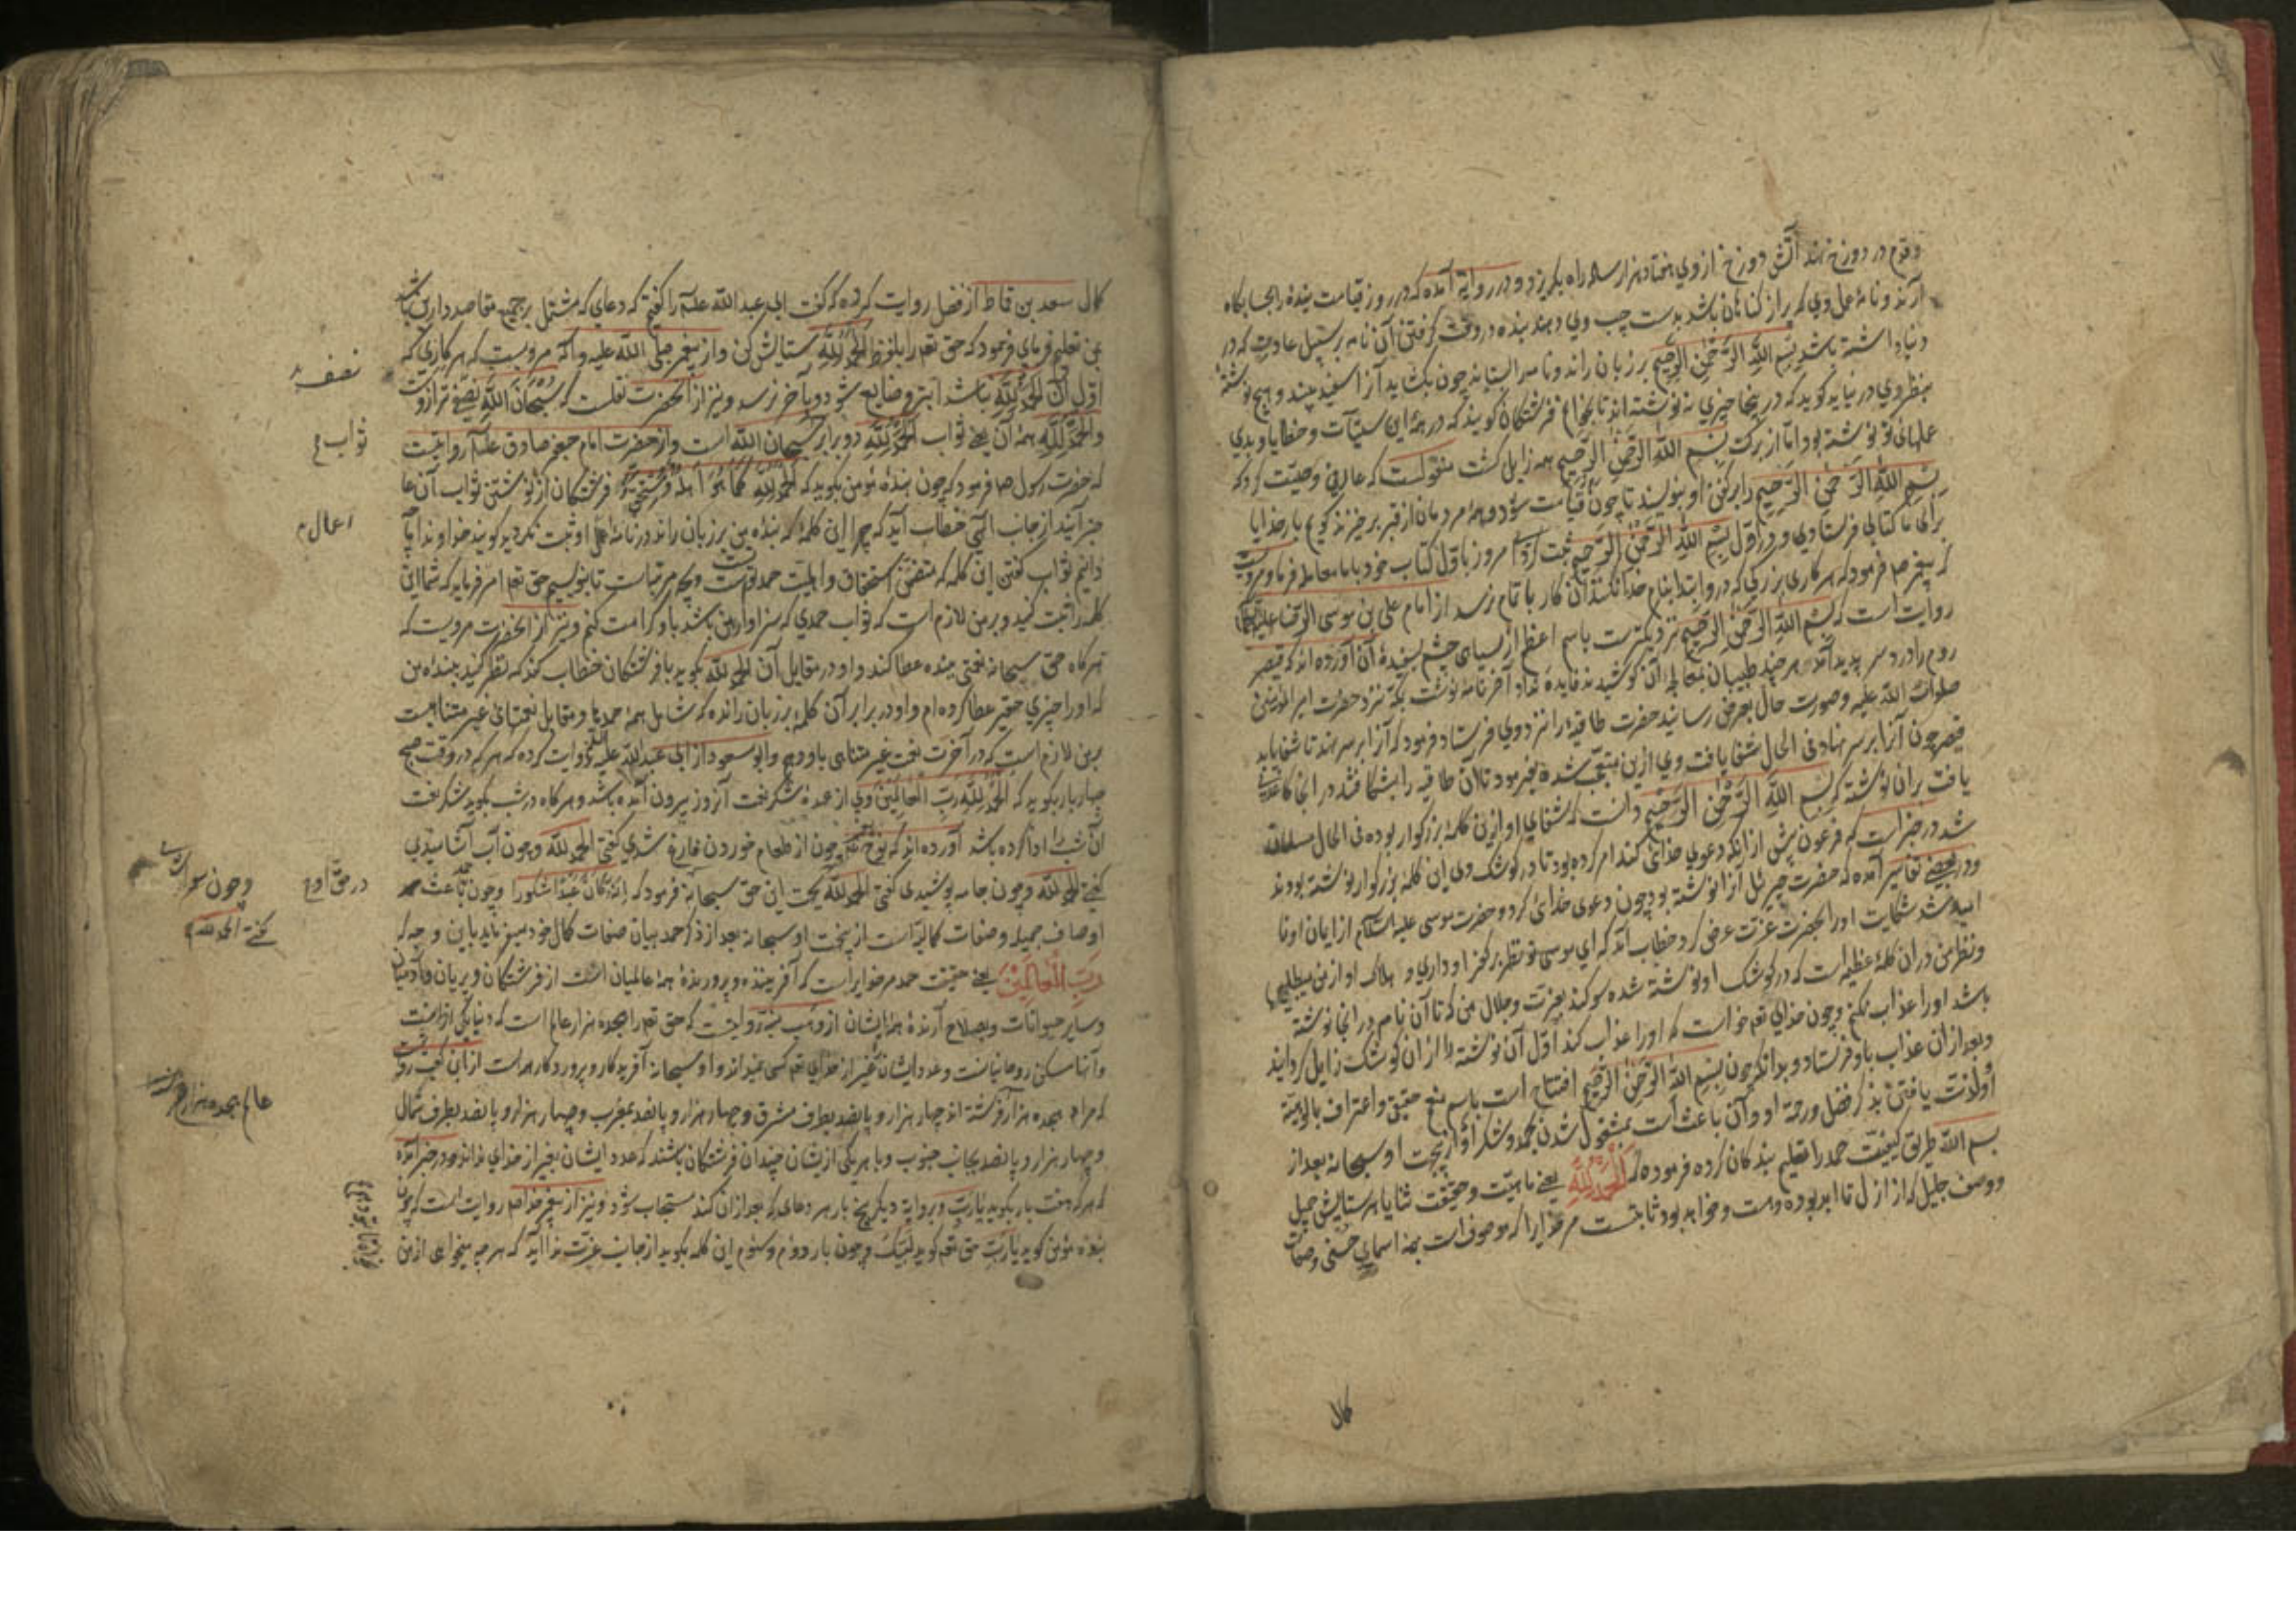 وقدم در دوزخ نهد آتش دوزخ از وی هفتاد هزار ساله راه بگریزد و در روایة آمده که در روز قیامت بندهٔ را بحسابگاه
آرند و نامهٔ عمل وی که پر از گناهان باشد بدست چپ وی دهند بنده در وقت گرفتن آن نامه برسبیل عادت که در
دنیا داشته باشد بسم الله الرحمن الرحیم بر زبان راند و نامه را بستاند چون بگشاید آنرا سفید بیند و هیچ نوشته
بنظر وی در نیاید گوید که درینجا چیزی نه نوشته اند تا بخوانم فرشتگان گویند که در همهٔ این سیئات و خطایا و بدی
عملهای تو نوشته بود اما از برکت بسم الله الرحمن الرحیم همه زایل گشت منقولست که عارفی وصیت کرد که
بسم الله الرحمن الرحیم را بر کفن او بنویسند تا چون قیامت شود و همه مردمان از قبر برخیزند گویم بار خدایا
برای ما کتابی فرستادی و در اول بسم الله الرحمن الرحیم ثبت کردی امروز باول کتاب خود با ما معامله فرما و مرویست
که پیغمبر صم فرمود که هر کاری بزرگی که در ابتدا بنام خدا نکنند آن کار باتمام نرسد از امام علی بن موسی الرضا علیهما
روایت است که بسم الله الرحمن الرحیم نزدیکترست باسم اعظم از سیاهی چشم بسفیدهٔ آن آورده اند که قیصر
روم را درد سر پدید آمد هر چند طبیبان بمعالجهٔ آن کوشیدند فایده نداد آخر نامهٔ نوشت بنزد حضرت امیر المؤمنین
صلوات الله علیه و صورت حال بعرض رسانید حضرت طاقیهٔ را نزد وی فرستاد و فرمود که آنرا بر سر نهد تا شفا یابد
قیصر چون آنرا بر سر نهاد فی الحال شفا یافت وی ازین متعجب شده بفرمود تا آن طاقیه را بشکافتند در آنجا کاغذی
یافت بران نوشته که بسم الله الرحمن الرحیم دانست که شفای او ازین کلمهٔ بزرگوار بوده فی الحال مسلمان
شد در خبر است که فرعون پیش از آنکه دعوی خدائی کند امر کرده بود تا در کوشک وی این کلمهٔ بزرگوار نوشته بودند
و در بعضی تفاسیر آمده که حضرت جبرئیل آنرا نوشته بود چون دعوی خدائی کرد و حضرت موسی علیه السلام از ایمان او نا
امید شد شکایت او را بحضرت عزت عرض کرد خطاب آمد که ای موسی تو نظر بر کفر او داری و هلاک او از من میطلبی
و نظر من در آن کلمهٔ عظیمه است که در کوشک او نوشته شده سوگند بعزت و جلال من که تا آن نام در آنجا نوشته
باشد او را عذاب نکنم و چون خدای تعم خواست که او را عذاب کند اول آن نوشته را از ان کوشک زایل گردانید
و بعد از ان عذاب باو فرستاد و بدانکه چون بسم الله الرحمن الرحیم افتتاح است باسم منعم حقیقی و اعتراف بالوهیة
او لذت یافتن بذکر فضل و رحمة او و آن باعث است بمشغول شدن بحمد و شکر او ازین جهت او سبحانه بعد از
بسم الله طریق کیفیت حمد را تعلیم بندگان کرده فرموده که الحمد لله یعنی ماهیت و حقیقت ثنا یا هر ستایش جمیل
و وصف جلیل که از ازل تا ابد بوده و هست و خواهد بود ثابتست مر خدایرا که موصوف است بهمه اسمای حسنی و صفات
کمال
کمال سعد بن قماط از فضل روایت کرده که گفت ابی عبد الله علیه را گفتم که دعای که مشتمل بر جمیع مقاصد دارین باشد
بمن تعلیم فرمای فرمود که حق تعم را بلفظ الحمد لله ستایش کن و از پیغمبر صلی الله علیه و آله مرویست که هر کاری که
اول آن الحمد لله نباشد ابتر و ضایع شود و بآخر نرسد و نیز از آنحضرت نقلست که سبحان الله نصف ترازوست
والحمد لله همهٔ آن یعنی ثواب الحمد لله دو برابر سبحان الله است و از حضرت امام جعفر صادق علیه روایتست
که حضرت رسول صم فرمود که چون بندهٔ مؤمن بگوید که الحمد لله کما هو اهله و مستحقه فرشتگان از نوشتن ثواب آن عا
جز آیند از جانب الهی خطاب آید که چرا این کلمهٔ که بندهٔ من بر زبان راند در نامهٔ عمل او ثبت نکردید گویند خداوندا ما
دانیم ثواب گفتن این کلمه که متضمن استحقاق و اهلیت حمد تست بچه مرتبه است تا بنویسیم حق تعم امر فرماید که شما این
کلمه را ثبت کنید و بر من لازم است که ثواب حمدی که سزاوار من باشد باو کرامت کنم و نیز از آنحضرت مرویست که
هر گاه حق سبحانه نعمتی ببنده عطا کند و او در مقابل آن الحمد لله بگوید با فرشتگان خطاب کند که نظر کنید ببندهٔ من
که او را چیزی حقیر عطا کرده ام و او در برابر آن کلمهٔ بر زبان رانده که شامل همهٔ حمدها و مقابل نعمتهای غیر متناهیست
بر من لازم است که در آخرت نعمت غیر متناهی باو دهم و ابو مسعود از ابی عبد الله علیه السلام روایت کرده که هر که در وقت صبح
چهار بار بگوید که الحمد لله رب العالمین وی از عهدهٔ شکر نعمت آنروز بیرون آمده باشد و هر گاه در شب بگوید شکر نعمت
آن شب را ادا کرده باشد آورده اند که نوح علیه چون از طعام خوردن فارغ شدی گفتی الحمد لله و چون آب آشامیدی
گفتی الحمد لله و چون جامه پوشیدی گفتی الحمد لله بجهت این حق سبحانه فرمود که انه کان عبدا شکورا و چون باعث حمد
اوصاف جمیله و صفات کمالیه است ازین جهت او سبحانه بعد از ذکر حمد بیان صفات کمال خود میفرماید باین وجه که
رب العالمین یعنی حقیقت حمد مر خدایراست که آفریننده و پرورندهٔ همهٔ عالمیان است از فرشتگان و پریان و آدمیان
و سایر حیوانات و بصلاح آرندهٔ همهٔ ایشان از وهب بن منبه روایتست که حق تعم را هجده هزار عالم است که دنیا یکی از آنست
و آنها مسکن روحانیانست و عدد ایشان غیر از خدای تعم کسی نمیداند و او سبحانه آفریدگار و پروردگار همه است از ابن کعب روایتست
که مراد هجده هزار فرشته اند چهار هزار و پانصد بطرف مشرق و چهار هزار و پانصد بمغرب و چهار هزار و پانصد بطرف شمال
و چهار هزار و پانصد بجانب جنوب و با هر یکی ازیشان چندان فرشتگان باشند که عدد ایشان بغیر از خدای نداند و در خبر آمده
که هر که هفت بار بگوید یا رب و بروایة دیگر پنج بار هر دعای که بعد از ان کند مستجاب شود و نیز از پیغمبر خدا صم روایت است که چون
بندهٔ مؤمن گوید یا رب حق تعم گوید لبیک و چون بار دوم و سیوم این کلمه بگوید از جانب عزت ندا آید که هر چه میخواهی از من
نصف
ثواب
اعمال
در حق او
و چون سوار شدی
گفتی الحمد لله
عالم هجده هزار